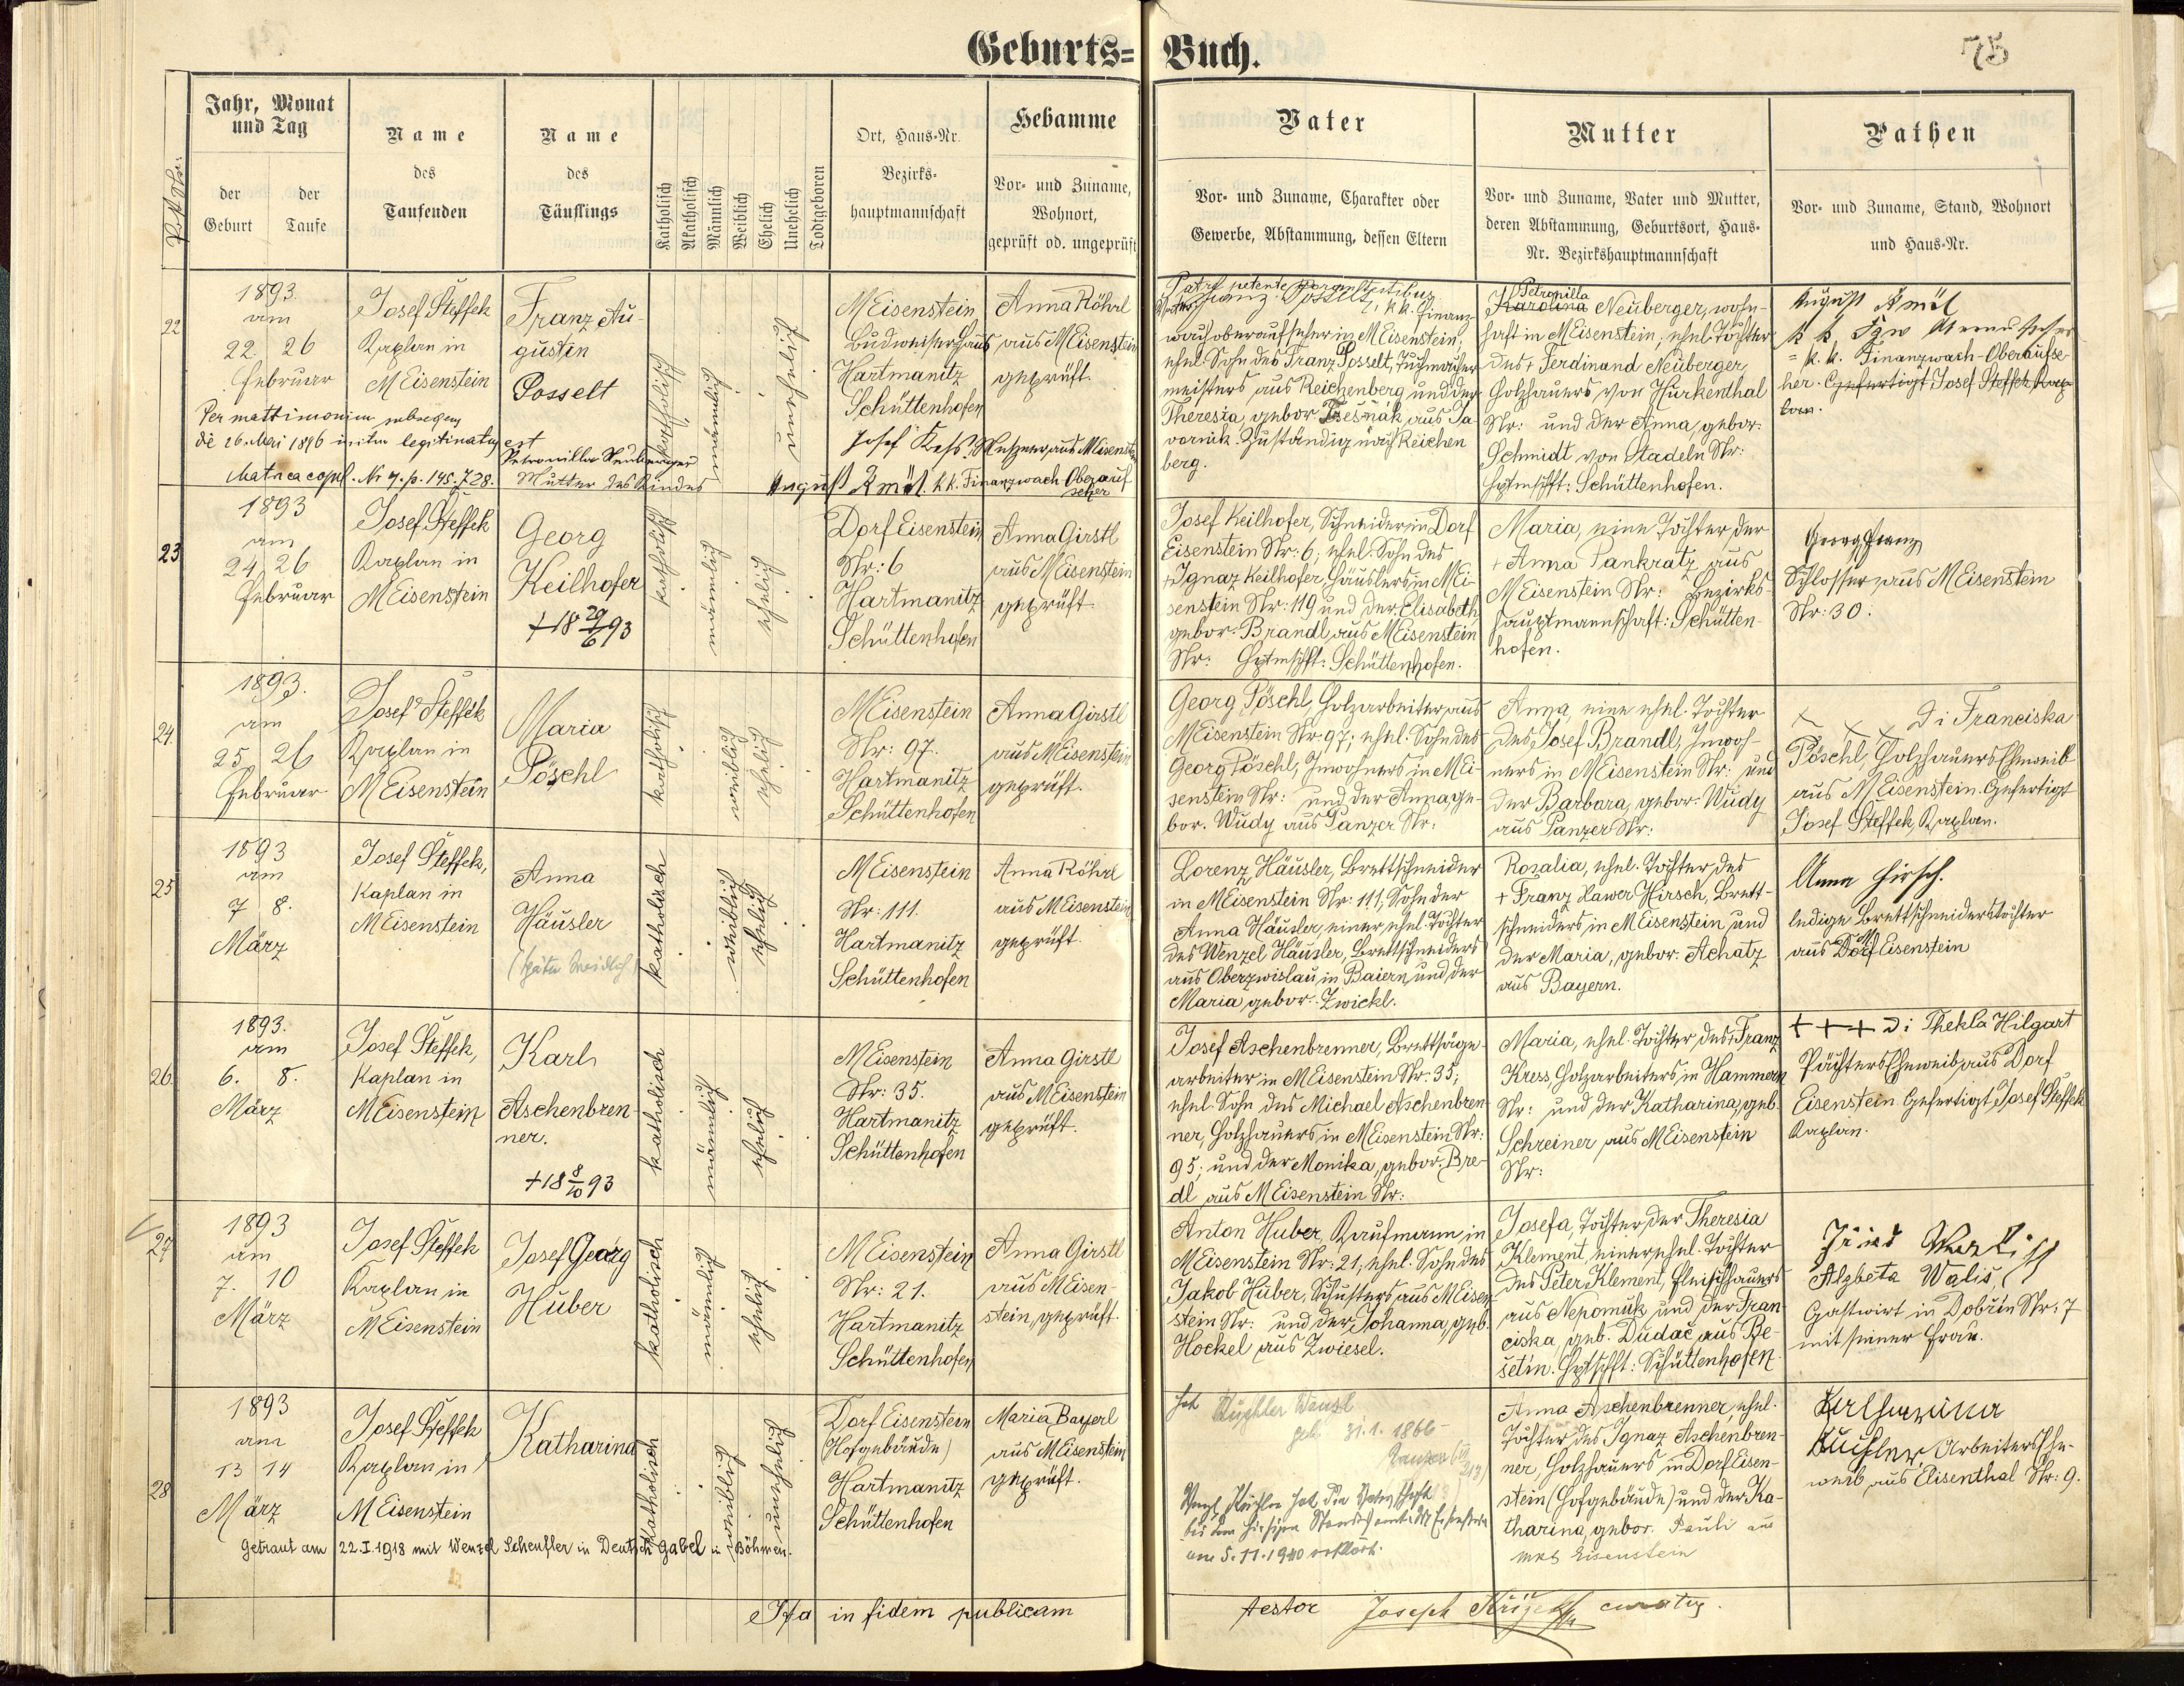 Geburts= Buch.
75
Post-Nr.
Jahr, Monat
und Tag
der
Geburt
der
Taufe
Name
des
Taufenden
Name
des
Täuflings
Katholisch
Akatholisch
Männlich
Weiblich
Ehelich
Unehelich
Todtgeboren
Ort, Haus-Nr.
Bezirks-
hauptmannschaft
Hebamme
Vor- und Zuname,
Wohnort,
geprüft od. ungeprüft
Vater
Vor- und Zuname, Charakter oder
Gewerbe, Abstammung, dessen Eltern
Mutter
Vor- und Zuname, Vater und Mutter,
deren Abstammung, Geburtsort, Haus-
Nr. Bezirkshauptmannschaft
Pathen
Vor- und Zuname, Stand, Wohnort
und Haus-Nr.
22
1893.
am
22. 26
Februar
Josef Šteffek
Kaplan in
M Eisenstein
Franz Au-
gustin
Posselt
katholisch
männlich
unehelich
M Eisenstein
Budweiserhaus
Hartmanitz
Schüttenhofen
Anna Röhrl
aus M Eisenstein
geprüft.
Per matrimonium subsequens
de 26. Mai 1896 initum legitimatus est
Matrica copul. No 7. p. 145. J 28.
Petronilla Neuberger
Mutter des Kindes
Josef Kess, Messner aus M Eisenstein
August Kmöt k.k. Finanzwach Oberauf-
seher
Patre petente coram testibus
Franz Posselt, k.k. Finanz-
wachoberaufseher in M Eisenstein,
ehel. Sohn des Franz Posselt, Tuchmacher-
meisters aus Reichenberg und der
Theresia, gebor. Tsesnak aus Ja-
vornik. Zuständig nach Reichen
berg.
Petronilla
Karolina Neuberger, wohn-
haft in M Eisenstein, ehel. Tochter
des + Ferdinand Neuberger,
Holzhauers von Hurkenthal
Nr: und der Anna, gebor.
Schmidt von Stadeln Nr:
Hptmschft: Schüttenhofen.
August Kmöt
= k. k. Finanzwach-Oberaufse-
her. Gefertigt Josef Šteffek Kap-
lan.
23
1893
am
24. 26
Februar
Josef Šteffek
Kaplan in
M Eisenstein
Georg
Keilhofer
+ 18 29/6 93
katholisch
männlich
ehelich
Dorf Eisenstein
Nr: 6
Hartmanitz
Schüttenhofen
Anna Girstl
aus M Eisenstein
geprüft
Josef Keilhofer, Schneider in Dorf
Eisenstein Nr: 6, ehel. Sohn des
+ Ignaz Keilhofer, Häuslers in M Ei-
senstein Nr: 119 und der Elisabeth,
gebor. Brandl aus M Eisenstein
Nr: Hptmschft: Schüttenhofen.
Maria, eine Tochter der
+ Anna Pankratz aus
M Eisenstein Nr: Bezirks-
hauptmannschaft: Schütten-
hofen.
Georg Franz
Schlosser aus M Eisenstein
Nr: 30.
24.
1893.
am
25 26
Februar
Josef Šteffek
Kaplan in
M Eisenstein
Maria
Pöschl
katholisch
weiblich
ehelich
M Eisenstein
Nr: 97.
Hartmanitz
Schüttenhofen
Anna Girstl
aus M Eisenstein
geprüft.
Georg Pöschl, Holzarbeiter aus
M Eisenstein Nr. 97; ehel. Sohn des
Georg Pöschl, Inwohners in M Ei-
senstein Nr: und der Anna ge-
bor. Wudy aus Panzer Nr:
Anna, eine ehel. Tochter
des Josef Brandl, Inwoh-
ners in M Eisenstein Nr: und
der Barbara, gebor. Wudy
aus Panzer Nr:
x x x Di Franciska
Pöschl, Holzhauers Eheweib
aus M Eisenstein. Gefertigt
Josef Šteffek, Kaplan.
25
1893
am
7 8.
März
Josef Šteffek,
Kaplan in
M Eisenstein
Anna
Häusler
katholisch
weiblich
ehelich
M Eisenstein
Nr: 111.
Hartmanitz
Schüttenhofen
Anna Röhrl
aus M Eisenstein
geprüft.
Lorenz Häusler, Brettschneider
in M Eisenstein Nr: 111, Sohn der
Anna Häusler, einer ehel. Tochter
des Wenzel Häusler, Brettschneiders
aus Oberzwislau in Baiern, und der
Maria, gebor. Zwickl.
Rosalia, ehel. Tochter des
+ Franz Xaver Hirsch, Brett-
schneiders in M Eisenstein und
der Maria, gebor. Achatz
aus Bayern.
Anna Hirsch.
ledige Brettschneiderstochter
aus Dorf Eisenstein
26.
1893.
am
6. 8.
März
Josef Šteffek,
Kaplan in
M Eisenstein
Karl
Aschenbren-
ner.
+ 18 8/10 93
katholisch
männlich
ehelich
M Eisenstein
Nr: 35.
Hartmanitz
Schüttenhofen
Anna Girstl
aus M Eisenstein
geprüft.
Josef Aschenbrenner, Brettsäge-
arbeiter in M Eisenstein Nr. 35;
ehel. Sohn des Michael Aschenbren-
ner, Holzhauers in M Eisenstein Nr:
95; und der Monika, gebor. Bre-
dl aus M Eisenstein Nr:
Maria, ehel. Tochter des + Franz
Kress, Holzarbeiters in Hammern
Nr: und der Katharina, geb.
Schreiner aus M Eisenstein
Nr:
+ + + Di Thekla Hilgart
Pächters Eheweib aus Dorf
Eisenstein. Gefertigt Josef Šteffek
Kaplan.
27
1893
am
7. 10
März
Josef Šteffek
Kaplan in
M Eisenstein
Josef Georg
Huber
katholisch
männlich
ehelich
M Eisenstein
Nr: 21.
Hartmanitz
Schüttenhofen
Anna Girstl
aus M Eisen-
stein, geprüft.
Anton Huber, Kaufmann in
M Eisenstein Nr: 21, ehel. Sohn des
Jakob Huber, Schusters aus M Eisen-
stein Nr: und der Johanna, geb.
Hockel aus Zwiesel.
Josefa, Tochter der Theresia
Klement, einer ehel. Tochter
des Peter Klement, Fleischhauers
aus Nepomuk, und der Fran-
ciska, geb. Dudač aus Be-
šetin. Hptschft: Schüttenhofen.
Alzbeta Wališ
Gastwirt in Dobřin Nr: 7
mit seiner Frau.
28
1893
am
13 14
März
Josef Šteffek
Kaplan in
M Eisenstein
Katharina
katholisch
weiblich
unehelich
Dorf Eisenstein
(Hofgebäude)
Hartmanitz
Schüttenhofen
Maria Bayerl
aus M Eisenstein
geprüft.
Getraut am 22.I.1918 mit Wenzel Scheufler in Deutsch Gabel in Böhmen.
geb. 31.1.1866
am 5.11.1940 erklärt.
Anna Aschenbrenner, ehel.
Tochter des Ignaz Aschenbren-
ner, Holzhauers in Dorf Eisen-
stein (Hofgebäude) und der Ka-
tharina, gebor. Pauli aus
Mkt Eisenstein
Katharina
Küchler, Arbeiters Ehe-
weib aus Elisenthal Nr: 9.
Ita in fidem publicam
testor Joseph curatus.